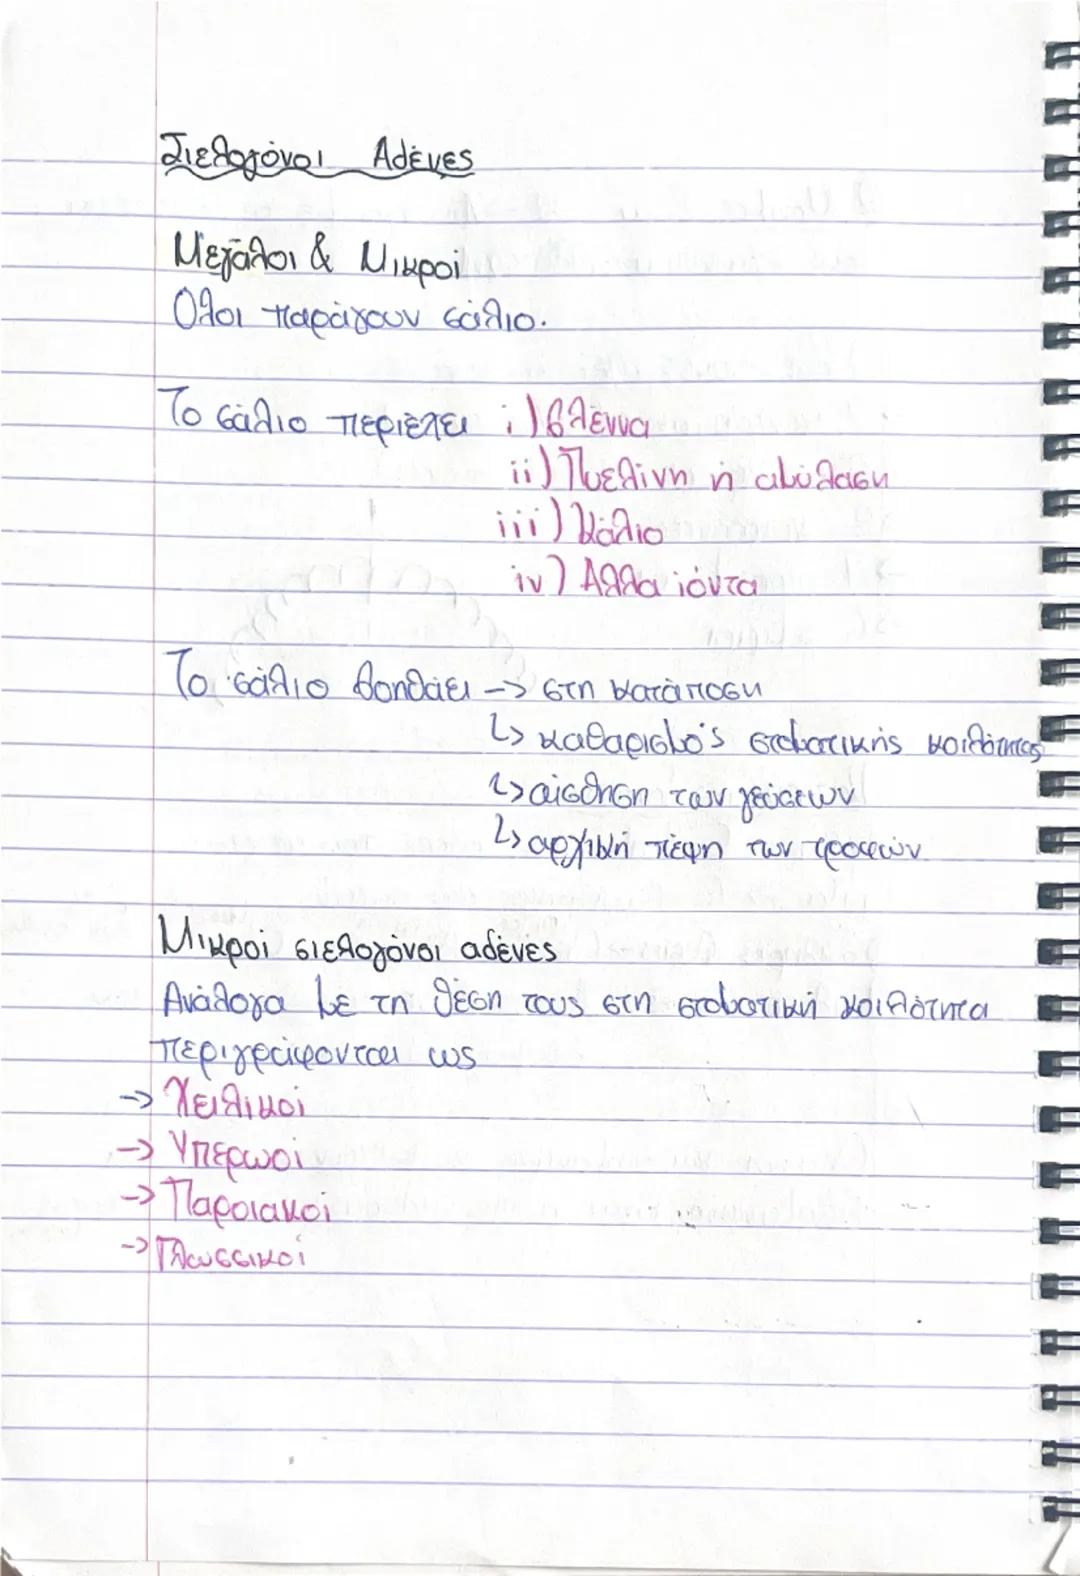 Σιελογόνοι Αδένες
Μεγάλοι & Μικροί
Όλοι παράγουν σάλιο.
Το σάλιο περιέχει i) βλέννα
ii) Πυελίνη ή αμύλαση
iii) Κάλιο
iv) Άλλα ιόντα
Το σάλιο βοηθάει -> στη κατάποση
↳ καθαρισμός στοματικής κοιλότητας
↳ αίσθηση των γεύσεων
↳ αρχική πέψη των τροφών
Μικροί σιελογόνοι αδένες
Ανάλογα με τη θέση τους στη στοματική κοιλότητα
περιγράφονται ως
-> Χειλικοί
-> Υπερωοι
-> Παρειακοί
-> Γλωσσικοί